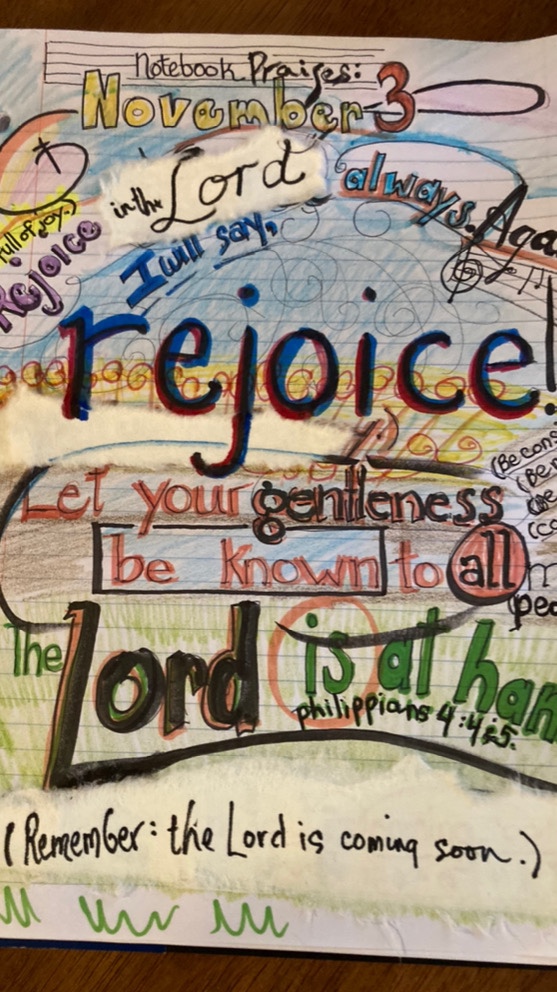 Notebook Praises:
November 3
(Full of joy.)
Rejoice in the Lord always. Aga
I will say,
rejoice!
(Be cons
Let your gentleness
be known to all m
peo
The Lord is at han
philippians 4:4&5.
(Remember: the Lord is coming soon.)